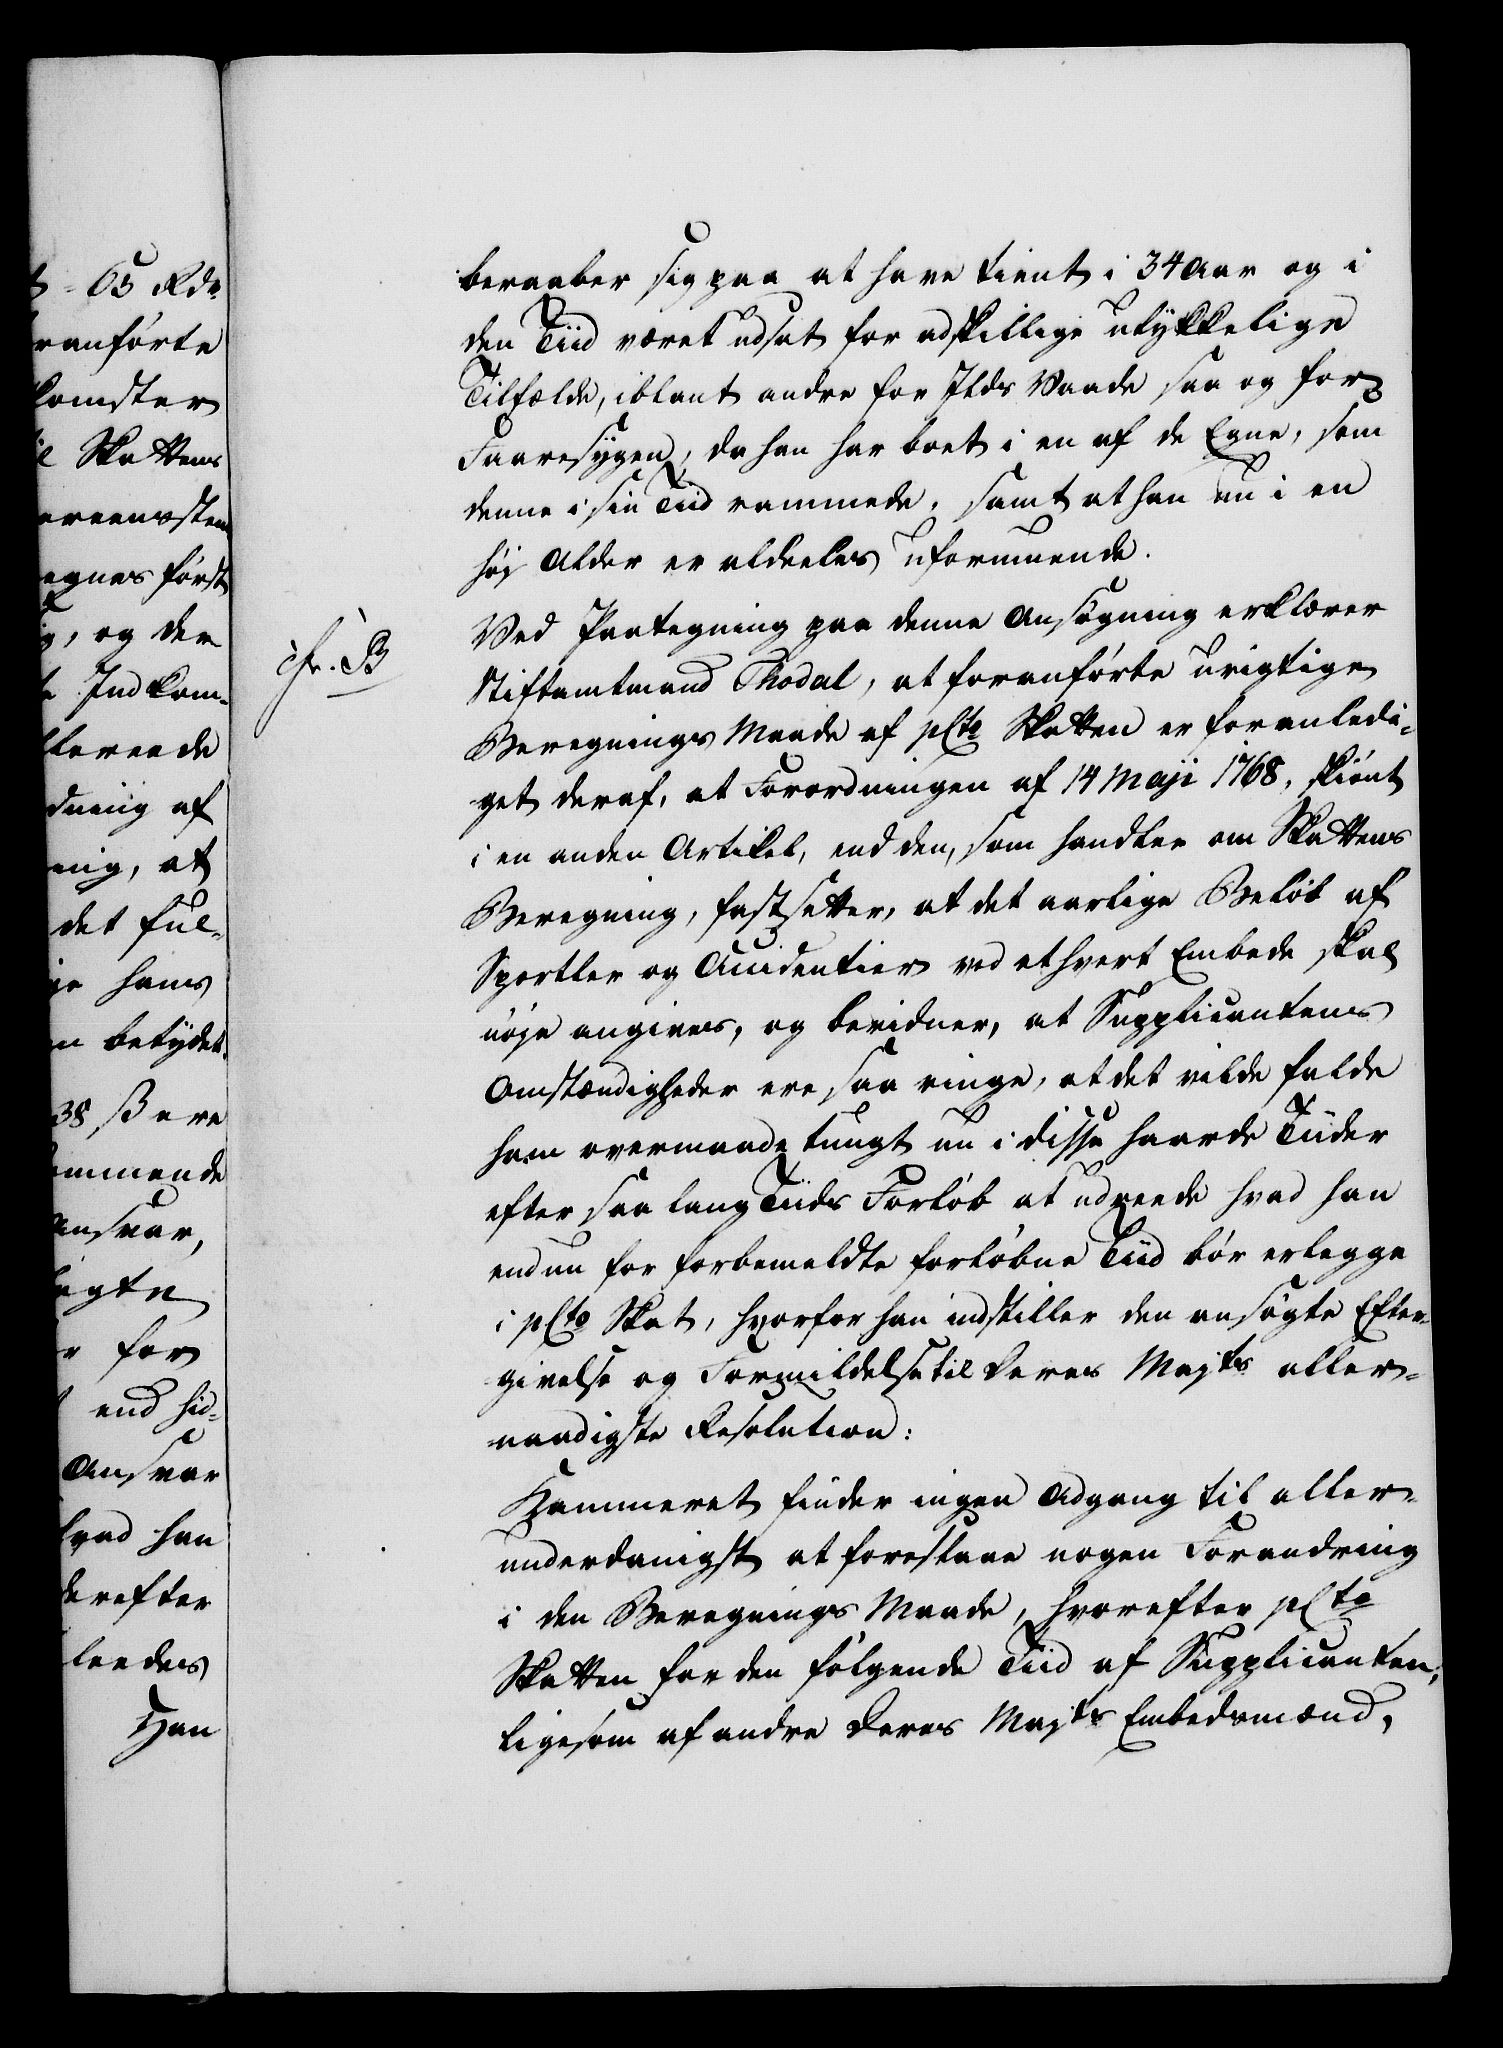 65 Rdr
ranførte
komster
Skattens
ereensstem
egnes først
, og der
Indkom-
tereede
dning af
ning, at
det ful-
hans
betydet.
38 ß ere
ommende
Ansvar,
søgte
for
end hid-
Ansvar
hvad han
derefter
leedes
Han
beraaber sig paa at have tient i 34 Aar og i
den Tiid været udsat for adskillige ulykkelige
Tilfælde, iblant andre for Ilds Vaade saa og for
Faaresygen, da han har boet i en af de Egne, som
denne i sin Tiid rammede, samt at han nu i en
høj Alder er aldeeles uformuende.
cfr. B
Ved Paategning paa denne Ansøgning erklærer
Stiftamtmand Thodal, at foranførte urigtige
Beregnings Maade af pCto Skatten er foranledi-
get deraf, at Forordningen af 14 Maji 1768, skiønt
i en anden Artikel, end den, som handler om Skattens
Beregning, fastsetter, at det aarlige Beløb af
Sportler og Accidentier ved ethvert Embede skal
nøje angives, og bevidner, at Supplicantens
Omstændigheder ere saa ringe, at det vilde falde
ham overmaade tungt nu i disse haarde Tiider
efter saa lang Tiids Forløb at udreede hvad han
endnu for forbemeldte forløbne Tiid bør erlegge
i pCto Skat, hvorfor han indstiller den ansøgte Efter-
givelse og Formildelse til Deres Majts aller-
naadigste Resolution:
Kammeret finder ingen Adgang til aller-
underdanigst at foreslaae nogen Forandring
i den Beregnings Maade, hvorefter pCto
Skatten for den følgende Tiid af Supplicanten,
ligesom af andre Deres Majts Embedsmænd,